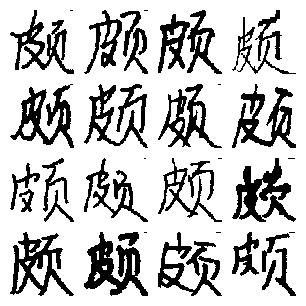 颇颇颇颇
颇颇颇颇
颇颇颇颇
颇颇颇颇